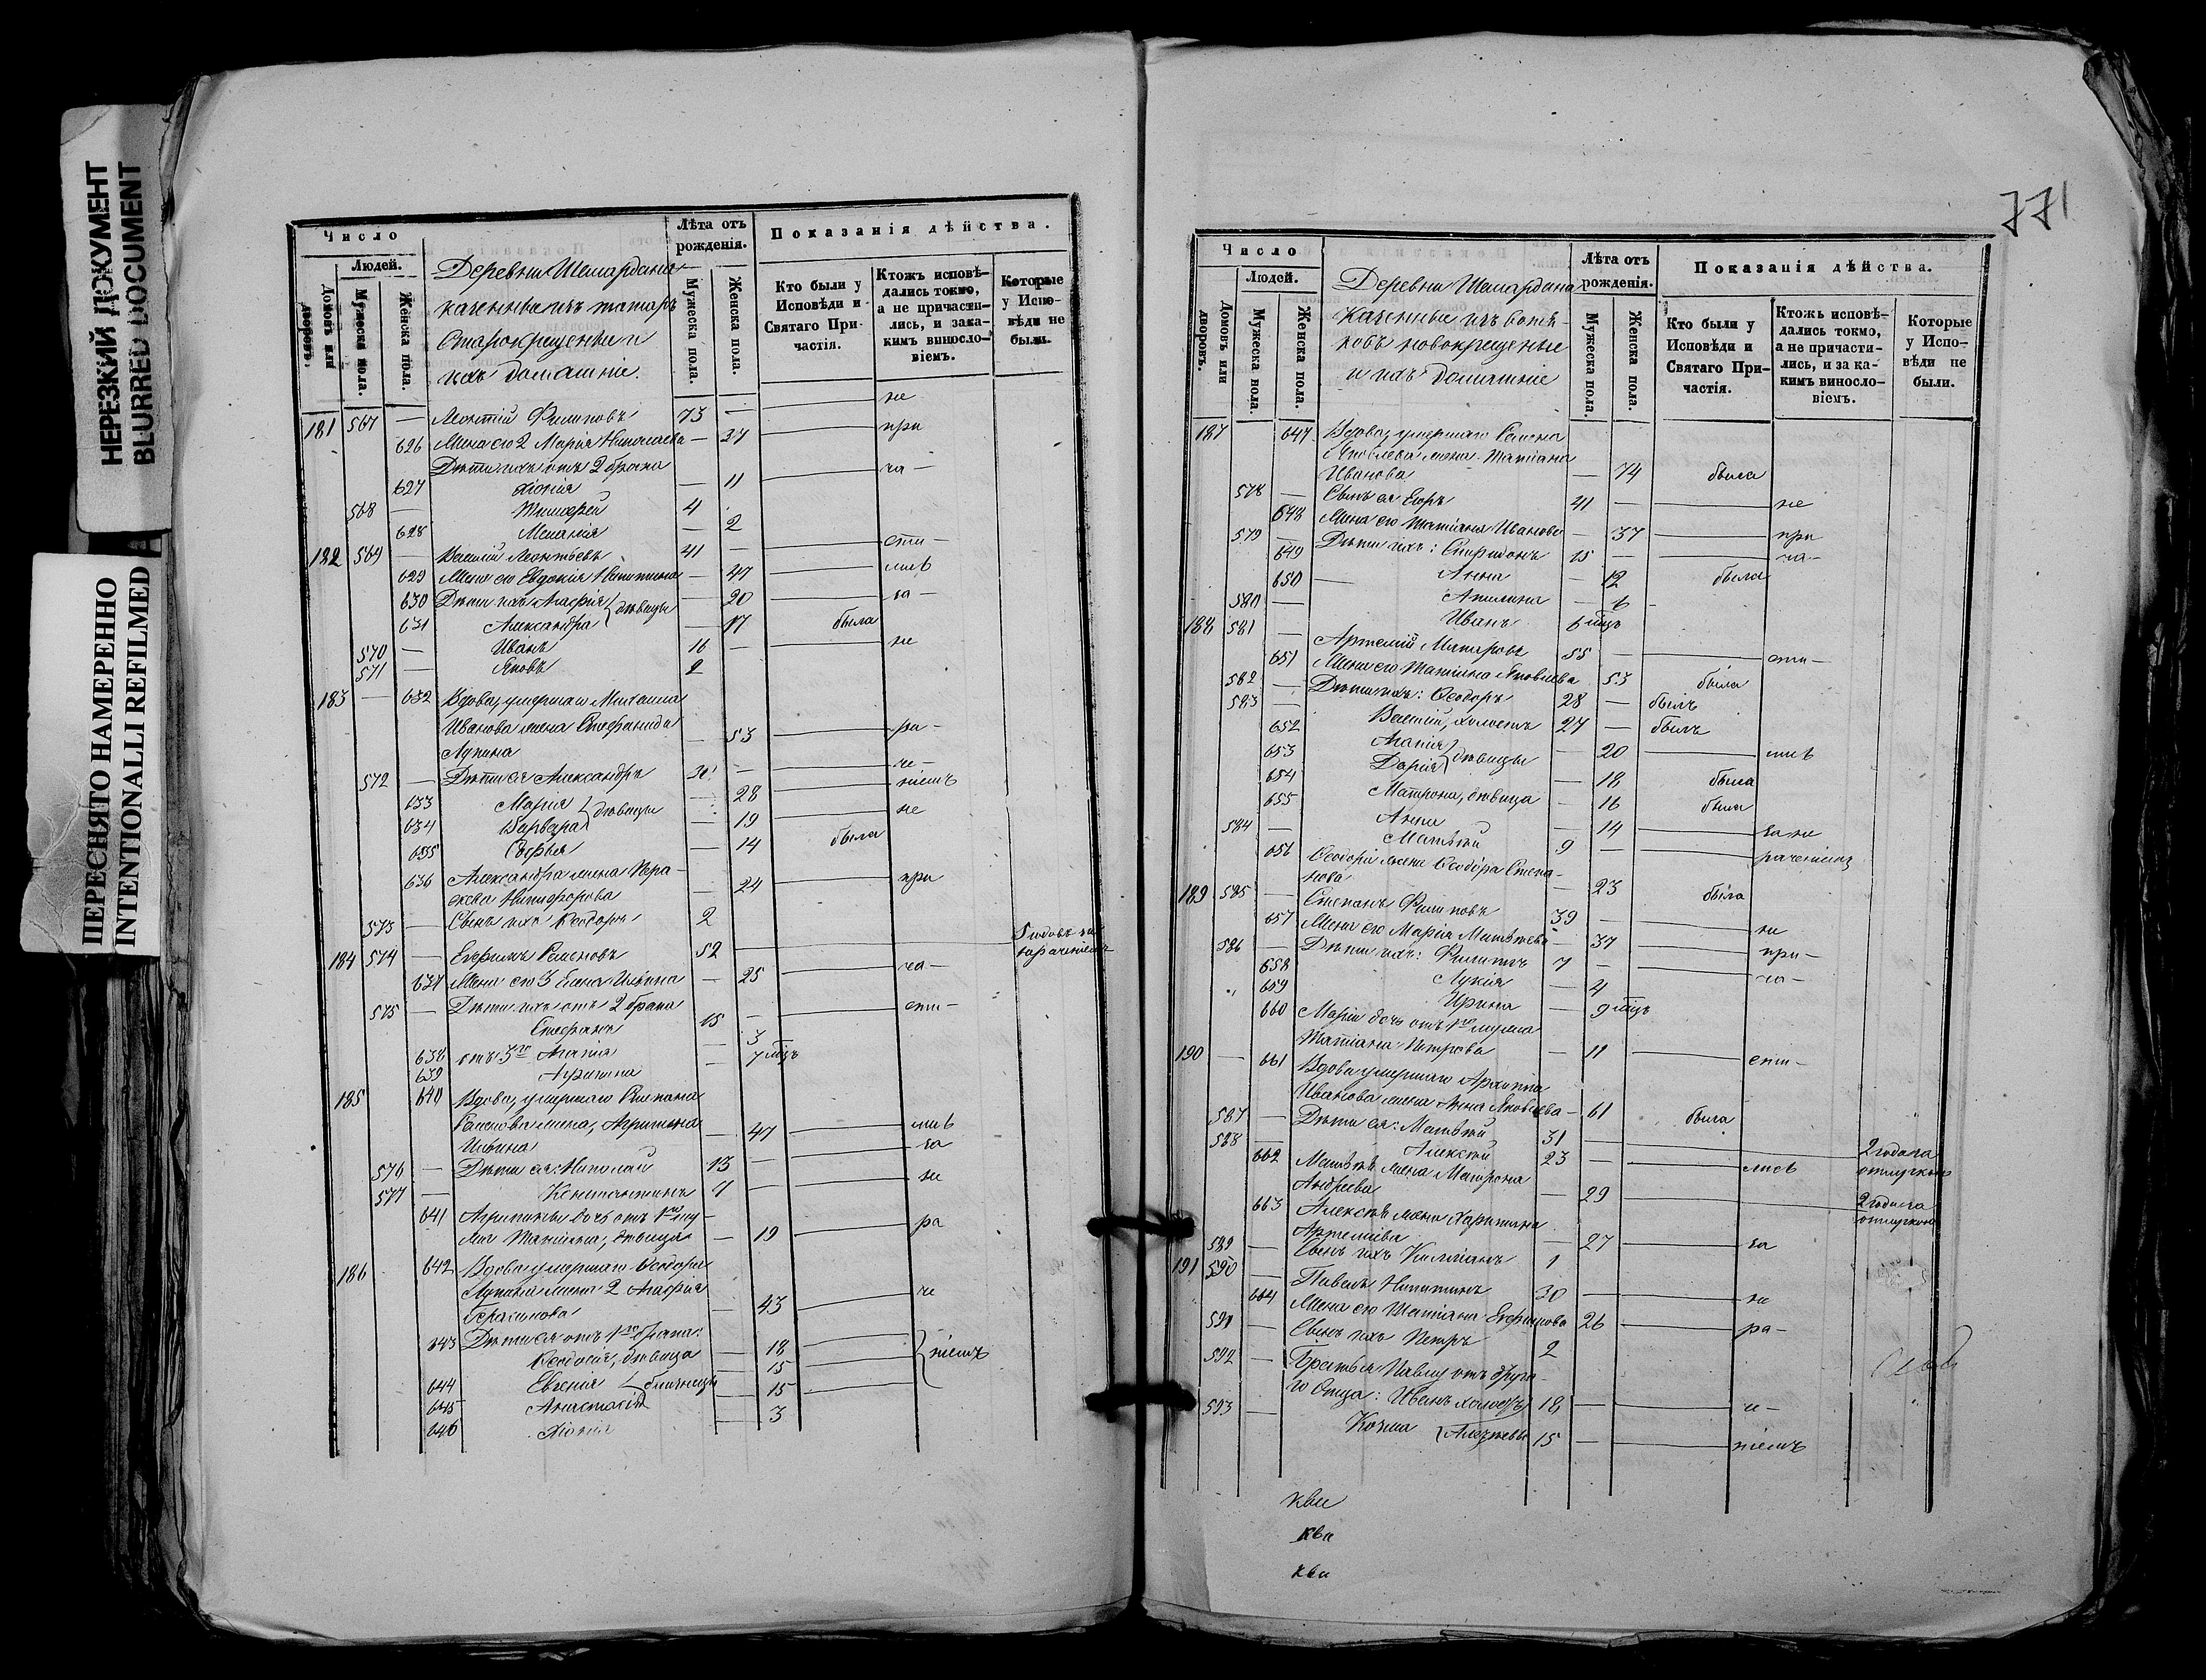 НЕРЕЗКИЙ ДОКУМЕНТ
BLURRED DOCUMENT
ПЕРЕСНЯТО НАМЕРЕННО
INTENTIONALLI REFILMED
Число
Людей.
Домовъ или дворовъ.
Мужеска пола.
Женска пола.
Деревни Шемардана
казенные изъ татаръ
Старокрещенные и
ихъ домашніе.
Лѣта отъ рожденія.
Мужеска пола.
Женска пола.
Показанія дѣйства.
Кто были у Исповѣди и Святаго Причастія.
Ктожъ исповѣдались токмо, а не причастились, и за какимъ винословіемъ.
Которые у Исповѣди не были.
181 567 — Леонтій Филиповъ 73 — не
626 Жена его 2 Марія Николаева — 37 при
Дѣти ихъ отъ 2 брака
627 Хіонія — 11 ча-
568 — Тимофей 4
628 Меланія — 2
182 569 — Василій Леонтьевъ 41 — сти-
629 Жена его Евдокія Никитина — 47 лись
630 Дѣти ихъ Агафія } дѣвицы — 20 за-
631 Александра — 17 была
570 — Иванъ 16 — не
571 — Яковъ 2
183 — 632 Вдова, умершаго Михаила
Иванова жена Стефанида
Лукина — 53 ра-
572 — Дѣти ея Александръ 30 — че-
633 Марія } дѣвицы — 28 ніемъ
634 Варвара — 19 не
635 Софья — 14 была
636 Александра жена Пара-
скева Никифорова — 24 при
573 — Сынъ ихъ Ѳеодоръ 2
184 574 — Ефимъ Семеновъ 52
637 Жена его 3 Елена Ильина — 25 ча-
575 — Дѣти ихъ отъ 2 брака
Стефанъ 15 — сти-
638 отъ 3го Агапія — 3
639 Агрипина — 7 мцъ
185 640 Вдова, умершаго Степана
Семенова жена, Агрипина
Ильина — 47 лись
576 — Дѣти ея: Николай 13 — за
577 — Константинъ 11 — не
641 Агрипины дочь отъ 1го му-
жа Татіана, дѣвица — 19 ра
186 642 Вдова умершаго Ѳеодора
Лукина жена 2 Агафія
Герасимова — 43 че
643 Дѣти ея отъ 1го брака:
Ѳеодосія, дѣвица — 18 } ніемъ
644 Евгенія } близнецы — 15
645 Анастасія — 15
646 Хіонія — 3
771
Число
Людей.
Домовъ или дворовъ.
Мужеска пола.
Женска пола.
Деревни Шемардана
Казенные изъ вотя-
ковъ новокрещеные
и ихъ домашніе
Лѣта отъ рожденія.
Мужеска пола.
Женска пола.
Показанія дѣйства.
Кто были у Исповѣди и Святаго Причастія.
Ктожъ исповѣдались токмо, а не причастились, и за какимъ винословіемъ.
Которые у Исповѣди не были.
187 647 Вдова, умершаго Семена
Яковлева жена Татіана
Иванова — 74 была
578 — Сынъ ея Егоръ 41 — не
648 Жена его Татіана Иванова — 37 при
579 — Дѣти ихъ: Спиридонъ 15 — ча-
649 Анна — 12 была
650 — Акилина — 6
580 — Иванъ 6 мцъ
188 581 — Артемій Макаровъ 55 — сти-
651 Жена его Татіана Яковлева 53 была
582 — Дѣти ихъ: Ѳеодоръ 28 — былъ
583 — Василій, холостъ 27 — былъ
652 Агапія } дѣвицы — 20 лись
653 Дарія — 18 была
654 Матрона, дѣвица — 16 была
655 Анна — 14 за не
584 — Матвѣй 9 — раченіемъ
656 Ѳеодора жена Ѳеодора Степа-
нова — 23 была
189 585 — Степанъ Филиповъ 39 — не
657 Жена его Марія Матвѣева — 37 при-
586 — Дѣти ихъ: Филиппъ 7 — ча-
658 Лукія — 4
659 Ирина — 9 мцъ
660 Маріи дочь отъ 1го мужа
Татіана Петрова — 11 сти-
190 — 661 Вдова умершаго Архиппа
Иванова жена Анна Яковлева — 61 была
587 — Дѣти ея: Матвѣй 31 — 2 года въ отлучкѣ
588 — Алексѣй 23 — лись
662 Матвѣя жена Матрона
Андреева — 29 2 года въ отлучкѣ
663 Алексѣя жена Харитина
Артемьева — 27 за
589 — Сынъ ихъ Килліанъ 1
191 590 — Павелъ Никитинъ 30 — не
664 Жена его Татіана Ефимова 26 ра-
591 — Сынъ ихъ Петръ 2
592 — Братья Павлу отъ друга-
го Отца: Иванъ холостъ 18 — че-
593 — Козма } Алексѣевы 15 — ніемъ